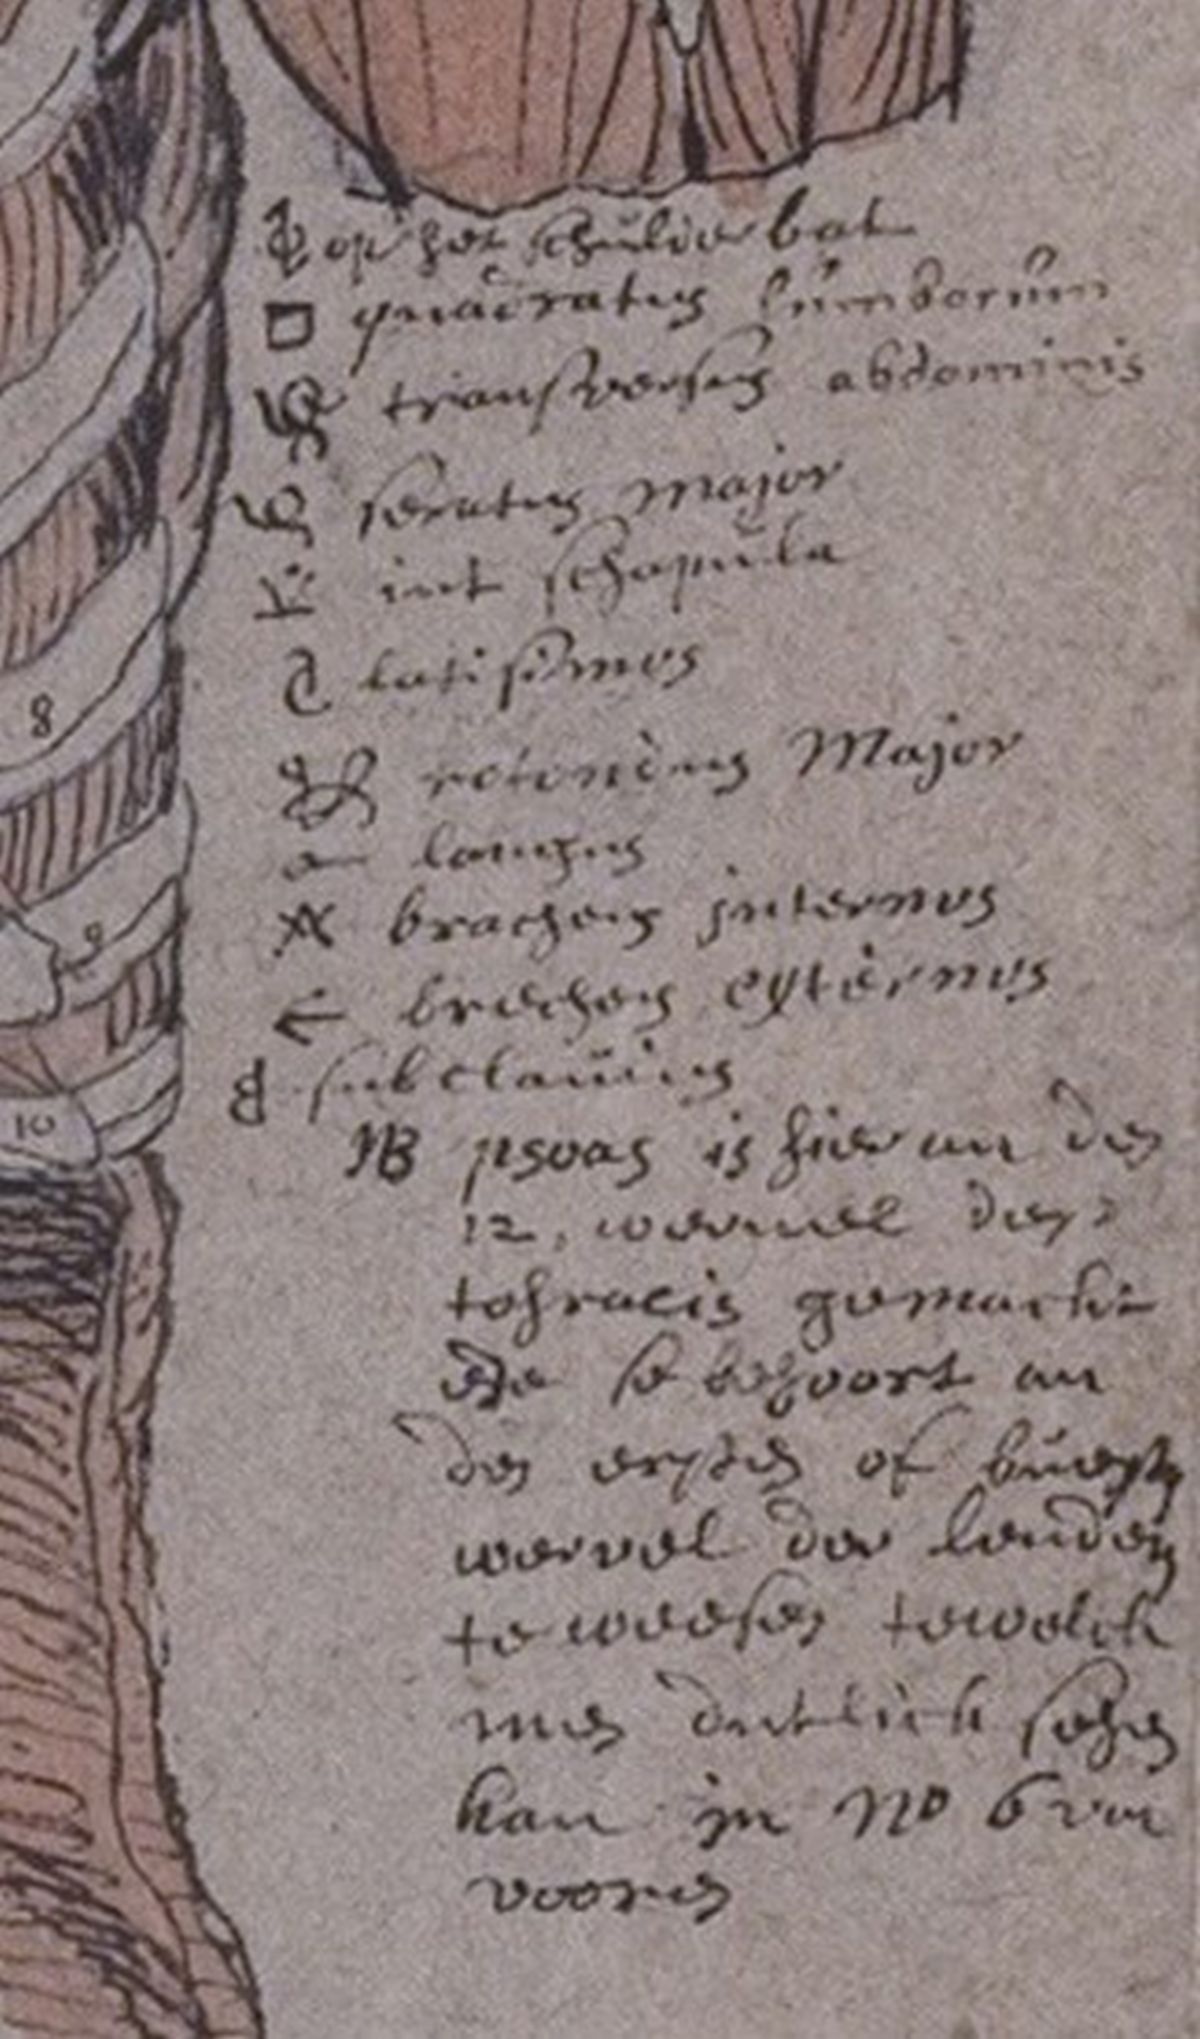 op het schulder bat
quadratus lumborum
transversus abdominis
seratus major
int schapula
latisimos
rotondus Major
longus
bracheus internos
bracheus externos
subclavius
NB psoas is hier an den
12. wervel der
tohracis gemackt
se behoort an
den ersten of
wervel der lenden
te weesen tewelck
men dutlick sehen
kan in No 6 van
vooren
8
9
10